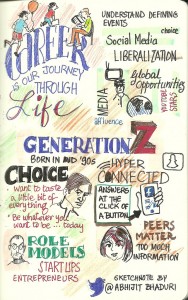 CAREER
IS OUR JOURNEY
THROUGH
Life
UNDERSTAND DEFINING
EVENTS
choice
Social Media
LIBERALIZATION
MEDIA
global opportunities
YOUTUBE
STARS
affluence
GENERATION Z
BORN IN MID '90s
CHOICE
want to taste
a little bit of
everything
Be whatever you
want to be... today
HYPER
CONNECTED
ANSWERS
AT THE
CLICK OF
A BUTTON
ROLE
MODELS
STARTUPS
ENTREPRENEURS
PEERS
MATTER
TOO MUCH
INFORMATION
SKETCHNOTE BY
@ABHIJIT BHADURI